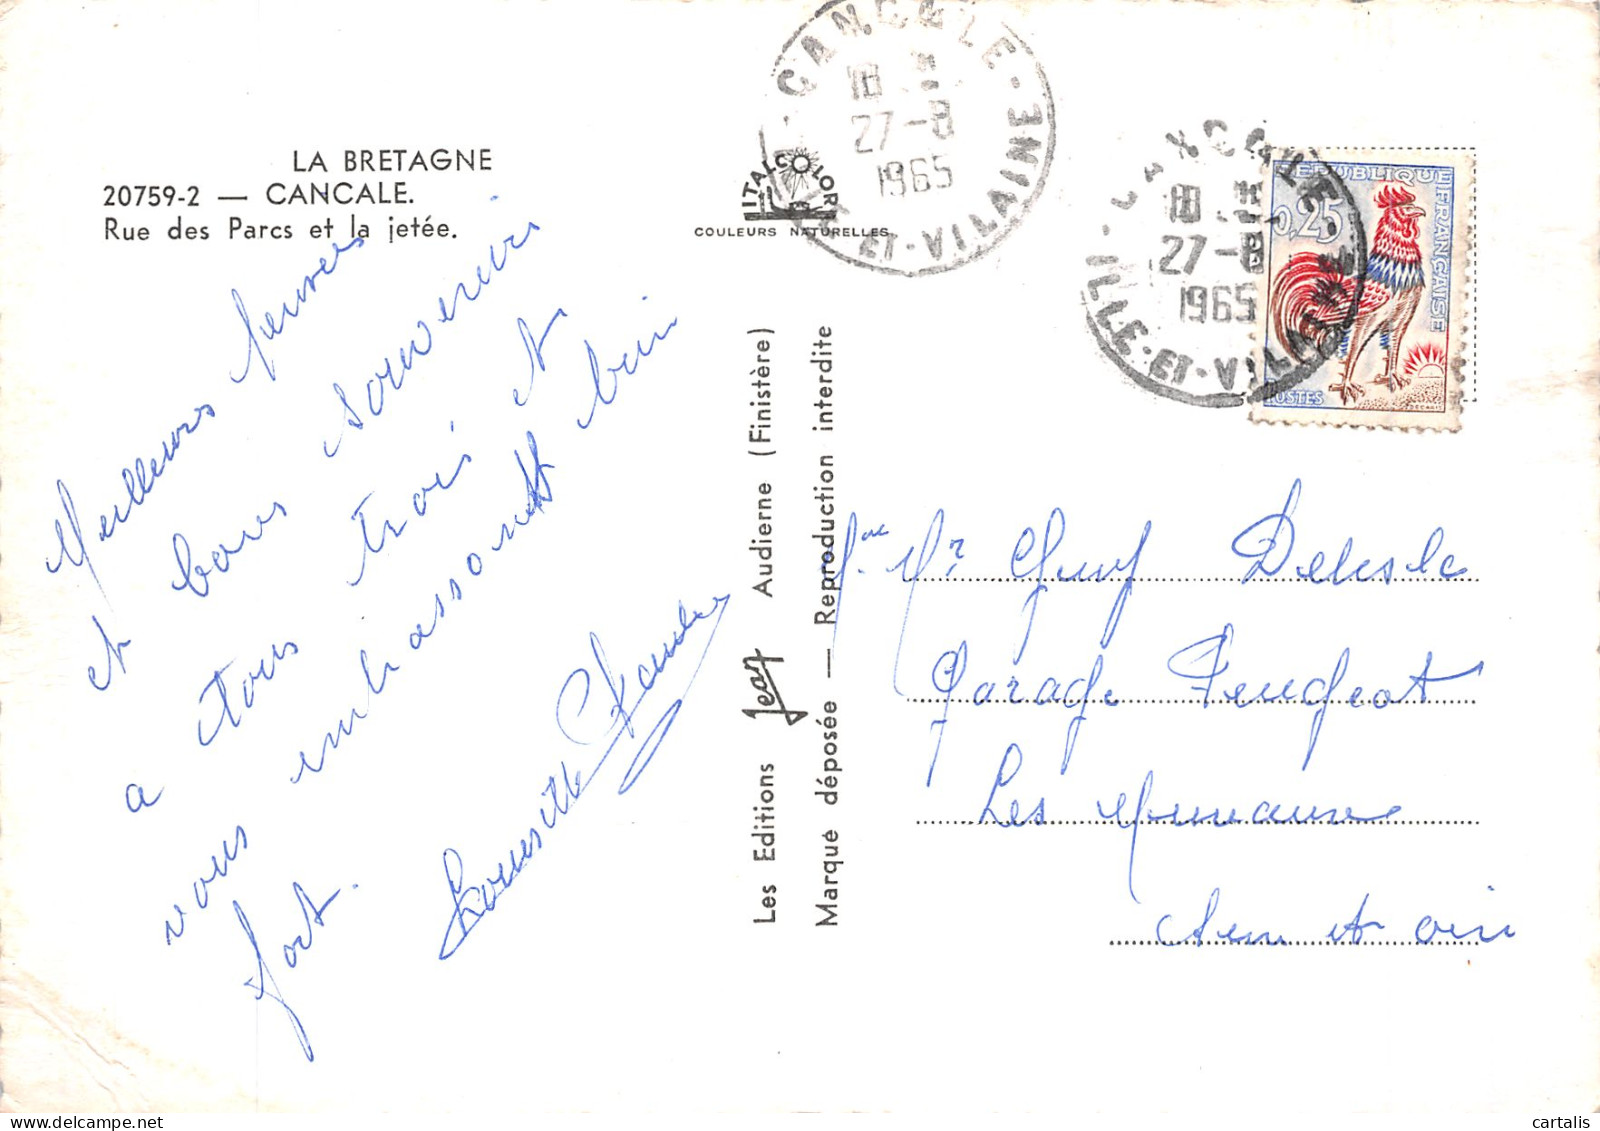 LA BRETAGNE
20759-2 — CANCALE.
Rue des Parcs et la jetée.
Meilleurs
et bons souvenirs
a tous trois et
vous embrassons bien
fort.
ITALCOLOR
COULEURS NATURELLES
CANCALE
18 H
27-8
1965
ILLE-ET-VILAINE
CANCALE
18 H
27-8
1965
ILLE-ET-VILAINE
REPUBLIQUE FRANÇAISE
0,25
POSTES
DECARIS
Les Editions Jean Audierne (Finistère)
Marque déposée — Reproduction interdite
Mr Guy
Garage Peugeot
Les
Seine et oise
cartalis